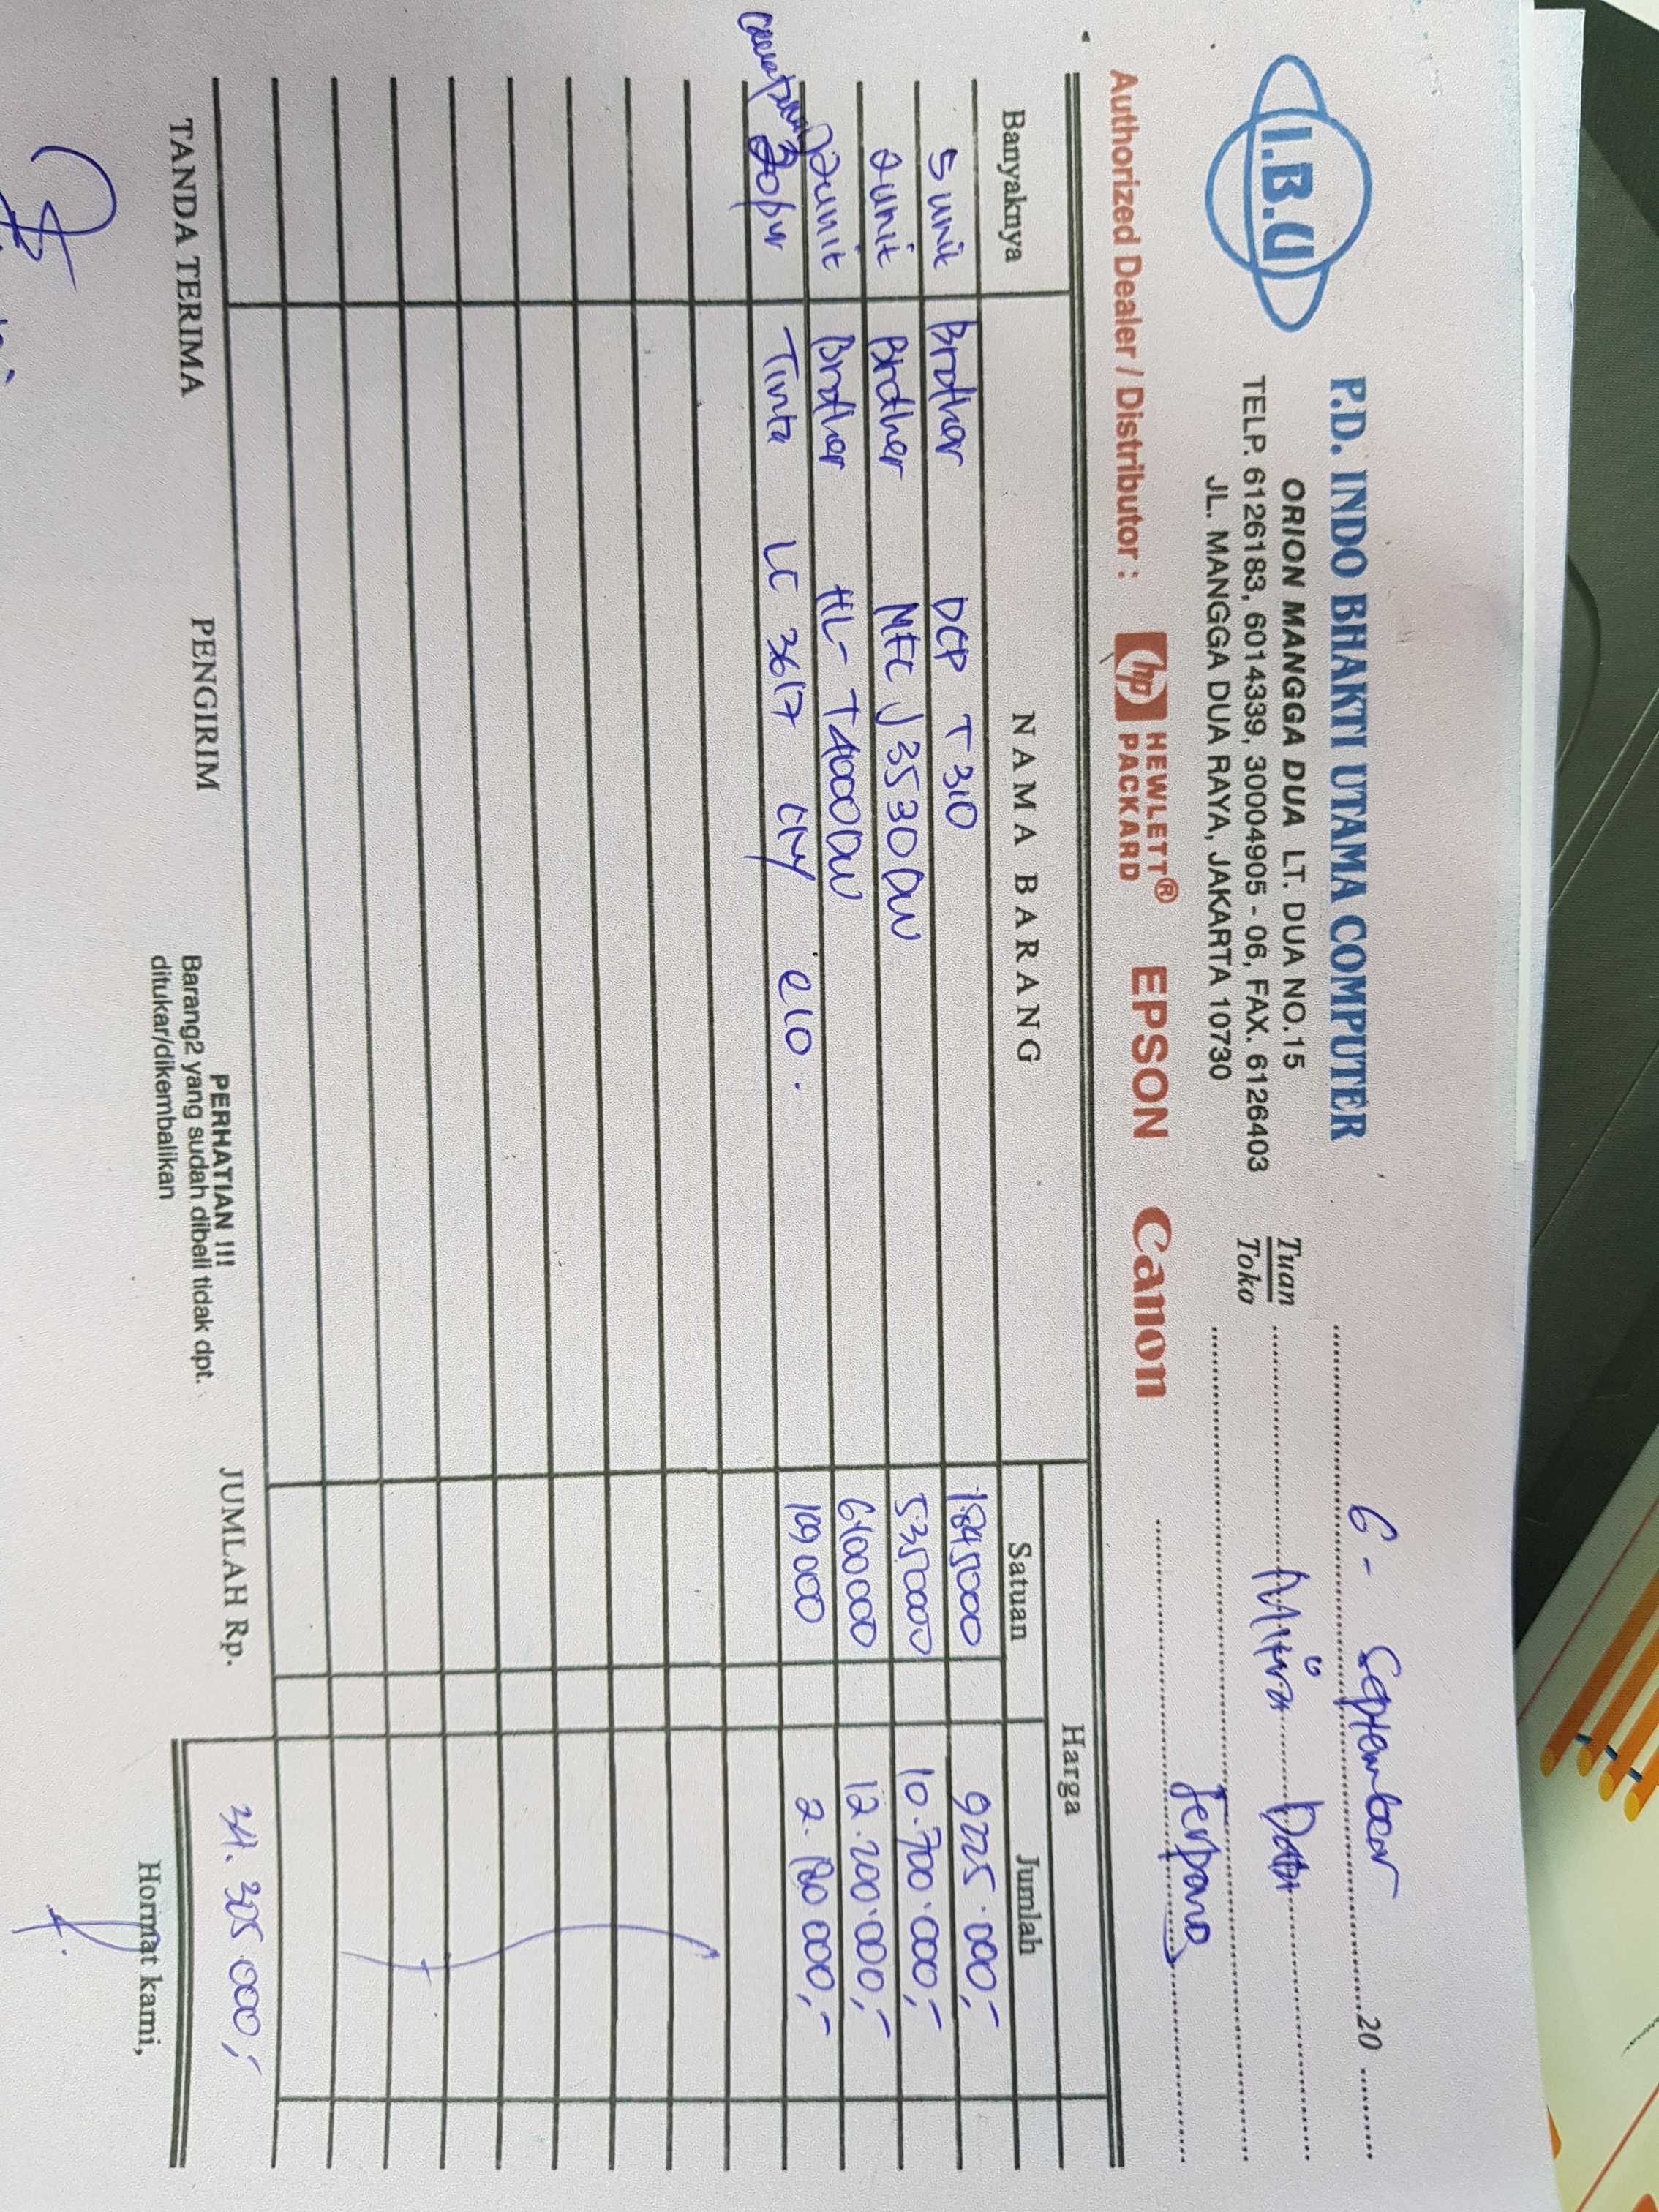 I.B.U
P.D. INDO BHAKTI UTAMA COMPUTER
ORION MANGGA DUA LT. DUA NO.15
TELP. 6126183, 6014339, 30004905 - 06, FAX. 6126403
JL. MANGGA DUA RAYA, JAKARTA 10730
6 - September 20
Tuan
Toko
Mitra
Jerpang
Authorized Dealer / Distributor : hp HEWLETT® PACKARD EPSON Canon
Banyaknya NAMA BARANG Harga
Satuan Jumlah
5 unit Brother DCP T310 1845000 9225.000,-
2 unit Brother MFC J3530DW 5350000 10.700.000,-
2 unit Brother HL-T4000DW 6100000 12.200.000,-
20 pcs Tinta LC 3617 CMY @10. 109000 2.180000,-
TANDA TERIMA PENGIRIM
PERHATIAN !!!
Barang2 yang sudah dibeli tidak dpt.
ditukar/dikembalikan
JUMLAH Rp. 34.305000,-
Hormat kami,